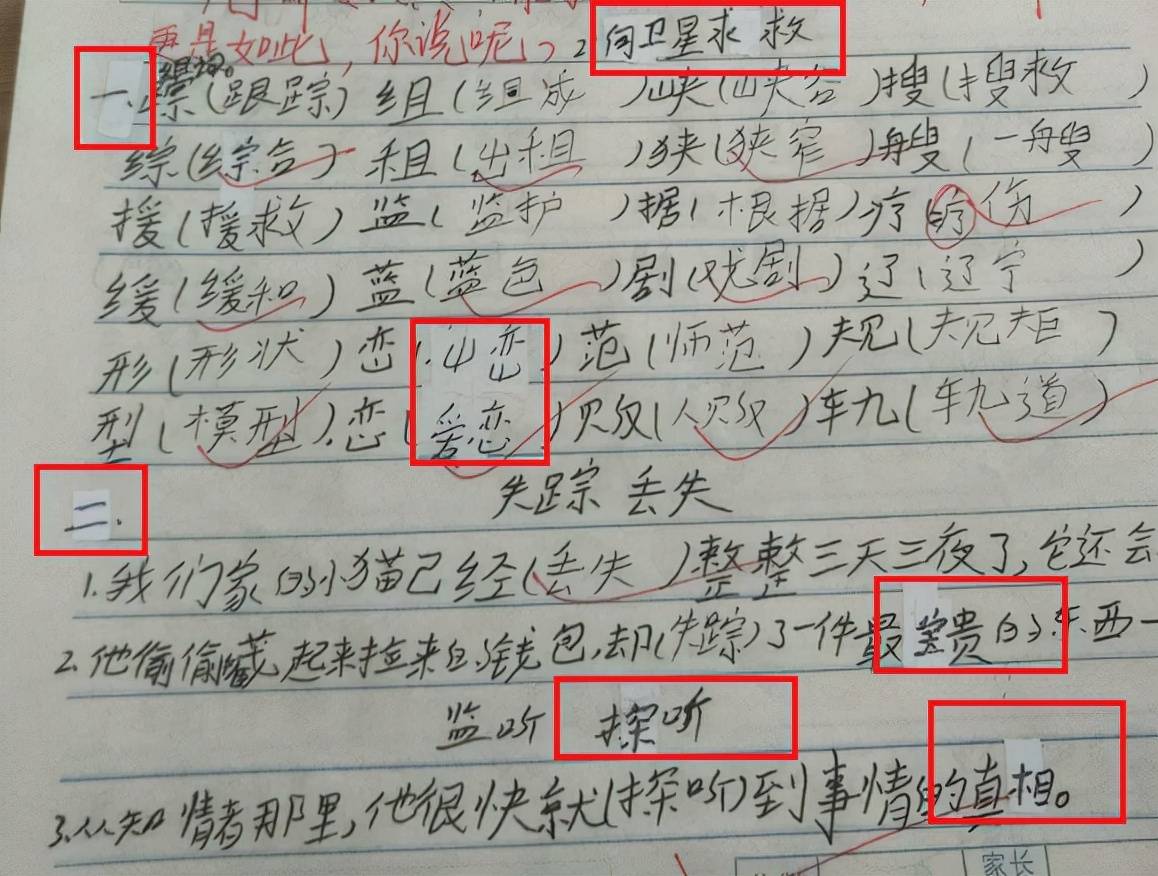 更是如此，你说呢？2.向卫星求救
组词。
一.踪(跟踪)组(组成)峡(峡谷)搜(搜救)
综(综合)租(出租)狭(狭窄)艘(一艘)
援(援救)监(监护)据(根据)疗(疗伤)
缓(缓和)蓝(蓝色)剧(戏剧)辽(辽宁)
形(形状)峦(山峦)范(师范)规(规矩)
型(模型)恋(爱恋)贬(人贬)轨(轨道)
二.
失踪 丢失
1.我们家的小猫已经(丢失)整整三天三夜了,它还会
2.他偷偷藏起来捡来的钱包,却(失踪)了一件最宝贵的东西一
监听 探听
3.从知情者那里,他很快就(探听)到事情的真相。
家长